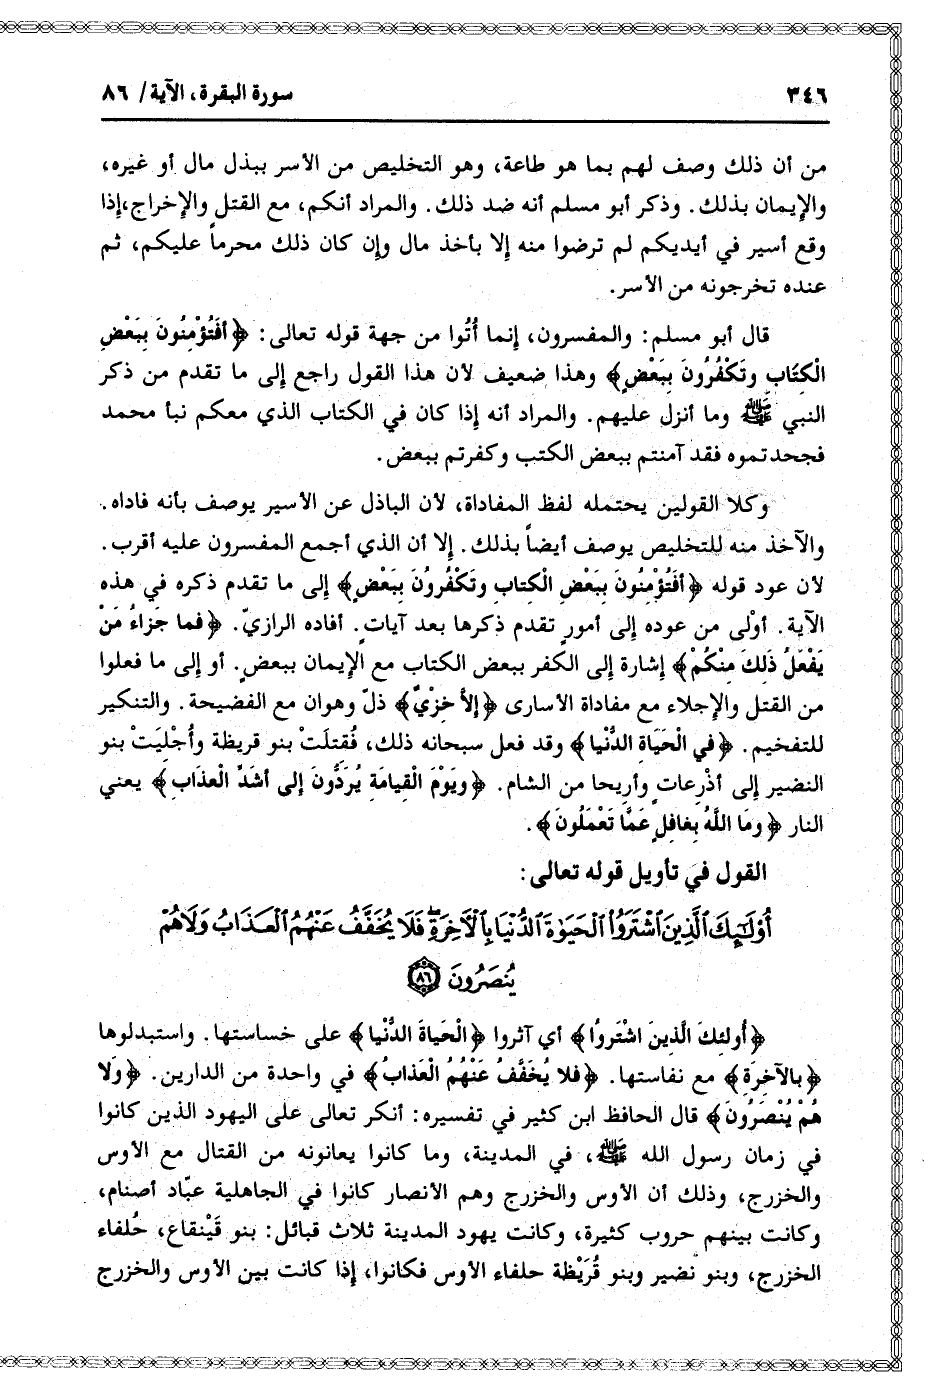 ٣٤٦ سورة البقرة، الآية/ ٨٦
من أن ذلك وصف لهم بما هو طاعة، وهو التخليص من الأسر ببذل مال أو غيره،
والإيمان بذلك. وذكر أبو مسلم أنه ضد ذلك. والمراد أنكم، مع القتل والإخراج،إذا
وقع أسير في أيديكم لم ترضوا منه إلا بأخذ مال وإن كان ذلك محرماً عليكم، ثم
عنده تخرجونه من الأسر.
قال أبو مسلم: والمفسرون، إنما أُتُوا من جهة قوله تعالى: ﴿أفَتُؤْمِنُونَ بِبَعْضِ
الْكِتَابِ وتَكْفُرُونَ بِبَعْضٍ﴾ وهذا ضعيف لأن هذا القول راجع إلى ما تقدم من ذكر
النبي ﷺ وما أنزل عليهم. والمراد أنه إذا كان في الكتاب الذي معكم نبأ محمد
فجحدتموه فقد آمنتم ببعض الكتب وكفرتم ببعض.
وكلا القولين يحتمله لفظ المفاداة، لأن الباذل عن الأسير يوصف بأنه فاداه.
والآخذ منه للتخليص يوصف أيضاً بذلك. إلا أن الذي أجمع المفسرون عليه أقرب.
لأن عود قوله ﴿أفَتُؤْمِنُونَ بِبَعْضِ الْكِتابِ وتَكْفُرُونَ بِبَعْضٍ﴾ إلى ما تقدم ذكره في هذه
الآية. أوْلى من عوده إلى أمورٍ تقدم ذكرها بعد آيات. أفاده الرازيّ. ﴿فما جَزاءُ مَنْ
يَفْعَلُ ذَلِكَ مِنْكُمْ﴾ إشارة إلى الكفر ببعض الكتاب مع الإيمان ببعضٍ. أو إلى ما فعلوا
من القتل والإجلاء مع مفاداة الأسارى ﴿إلاَّ خِزْيٌ﴾ ذلّ وهوان مع الفضيحة. والتنكير
للتفخيم. ﴿في الْحَيَاةِ الدُّنْيا﴾ وقد فعل سبحانه ذلك، فَقُتِلَتْ بنو قريظة وأُجْلِيَتْ بنو
النضير إلى أذْرِعاتٍ وأريحا من الشام. ﴿ويَوْمَ القِيامَةِ يُرَدُّونَ إلى أشَدِّ الْعذَابِ﴾ يعني
النار ﴿ومَا اللَّهُ بِغافِلٍ عَمَّا تَعْمَلُونَ﴾.
القول في تأويل قوله تعالى:
أُوْلَٰٓئِكَ ٱلَّذِينَ ٱشْتَرَوُا۟ ٱلْحَيَوٰةَ ٱلدُّنْيَا بِٱلْأَخِرَةِۖ فَلَا يُخَفَّفُ عَنْهُمُ ٱلْعَذَابُ وَلَا هُمْ
يُنصَرُونَ ٨٦
﴿أُولئِكَ الَّذِينَ اشْتَروُا﴾ أي آثروا ﴿الْحَياةَ الدُّنْيا﴾ على خساستها. واستبدلوها
﴿بالآخِرَةِ﴾ مع نفاستها. ﴿فلا يُخَفَّفُ عَنْهُمُ الْعَذابُ﴾ في واحدة من الدارين. ﴿ولَا
هُمْ يُنْصَرُونَ﴾ قال الحافظ ابن كثير في تفسيره: أنكر تعالى على اليهود الذين كانوا
في زمان رسول الله ﷺ، في المدينة، وما كانوا يعانونه من القتال مع الأوس
والخزرج، وذلك أن الأوس والخزرج وهم الأنصار كانوا في الجاهلية عبّاد أصنام،
وكانت بينهم حروب كثيرة، وكانت يهود المدينة ثلاث قبائل: بنو قَيْنقاع، حُلفاء
الخزرج، وبنو نضير وبنو قُرَيْظة حلفاء الأوس فكانوا، إذا كانت بين الأوس والخزرج